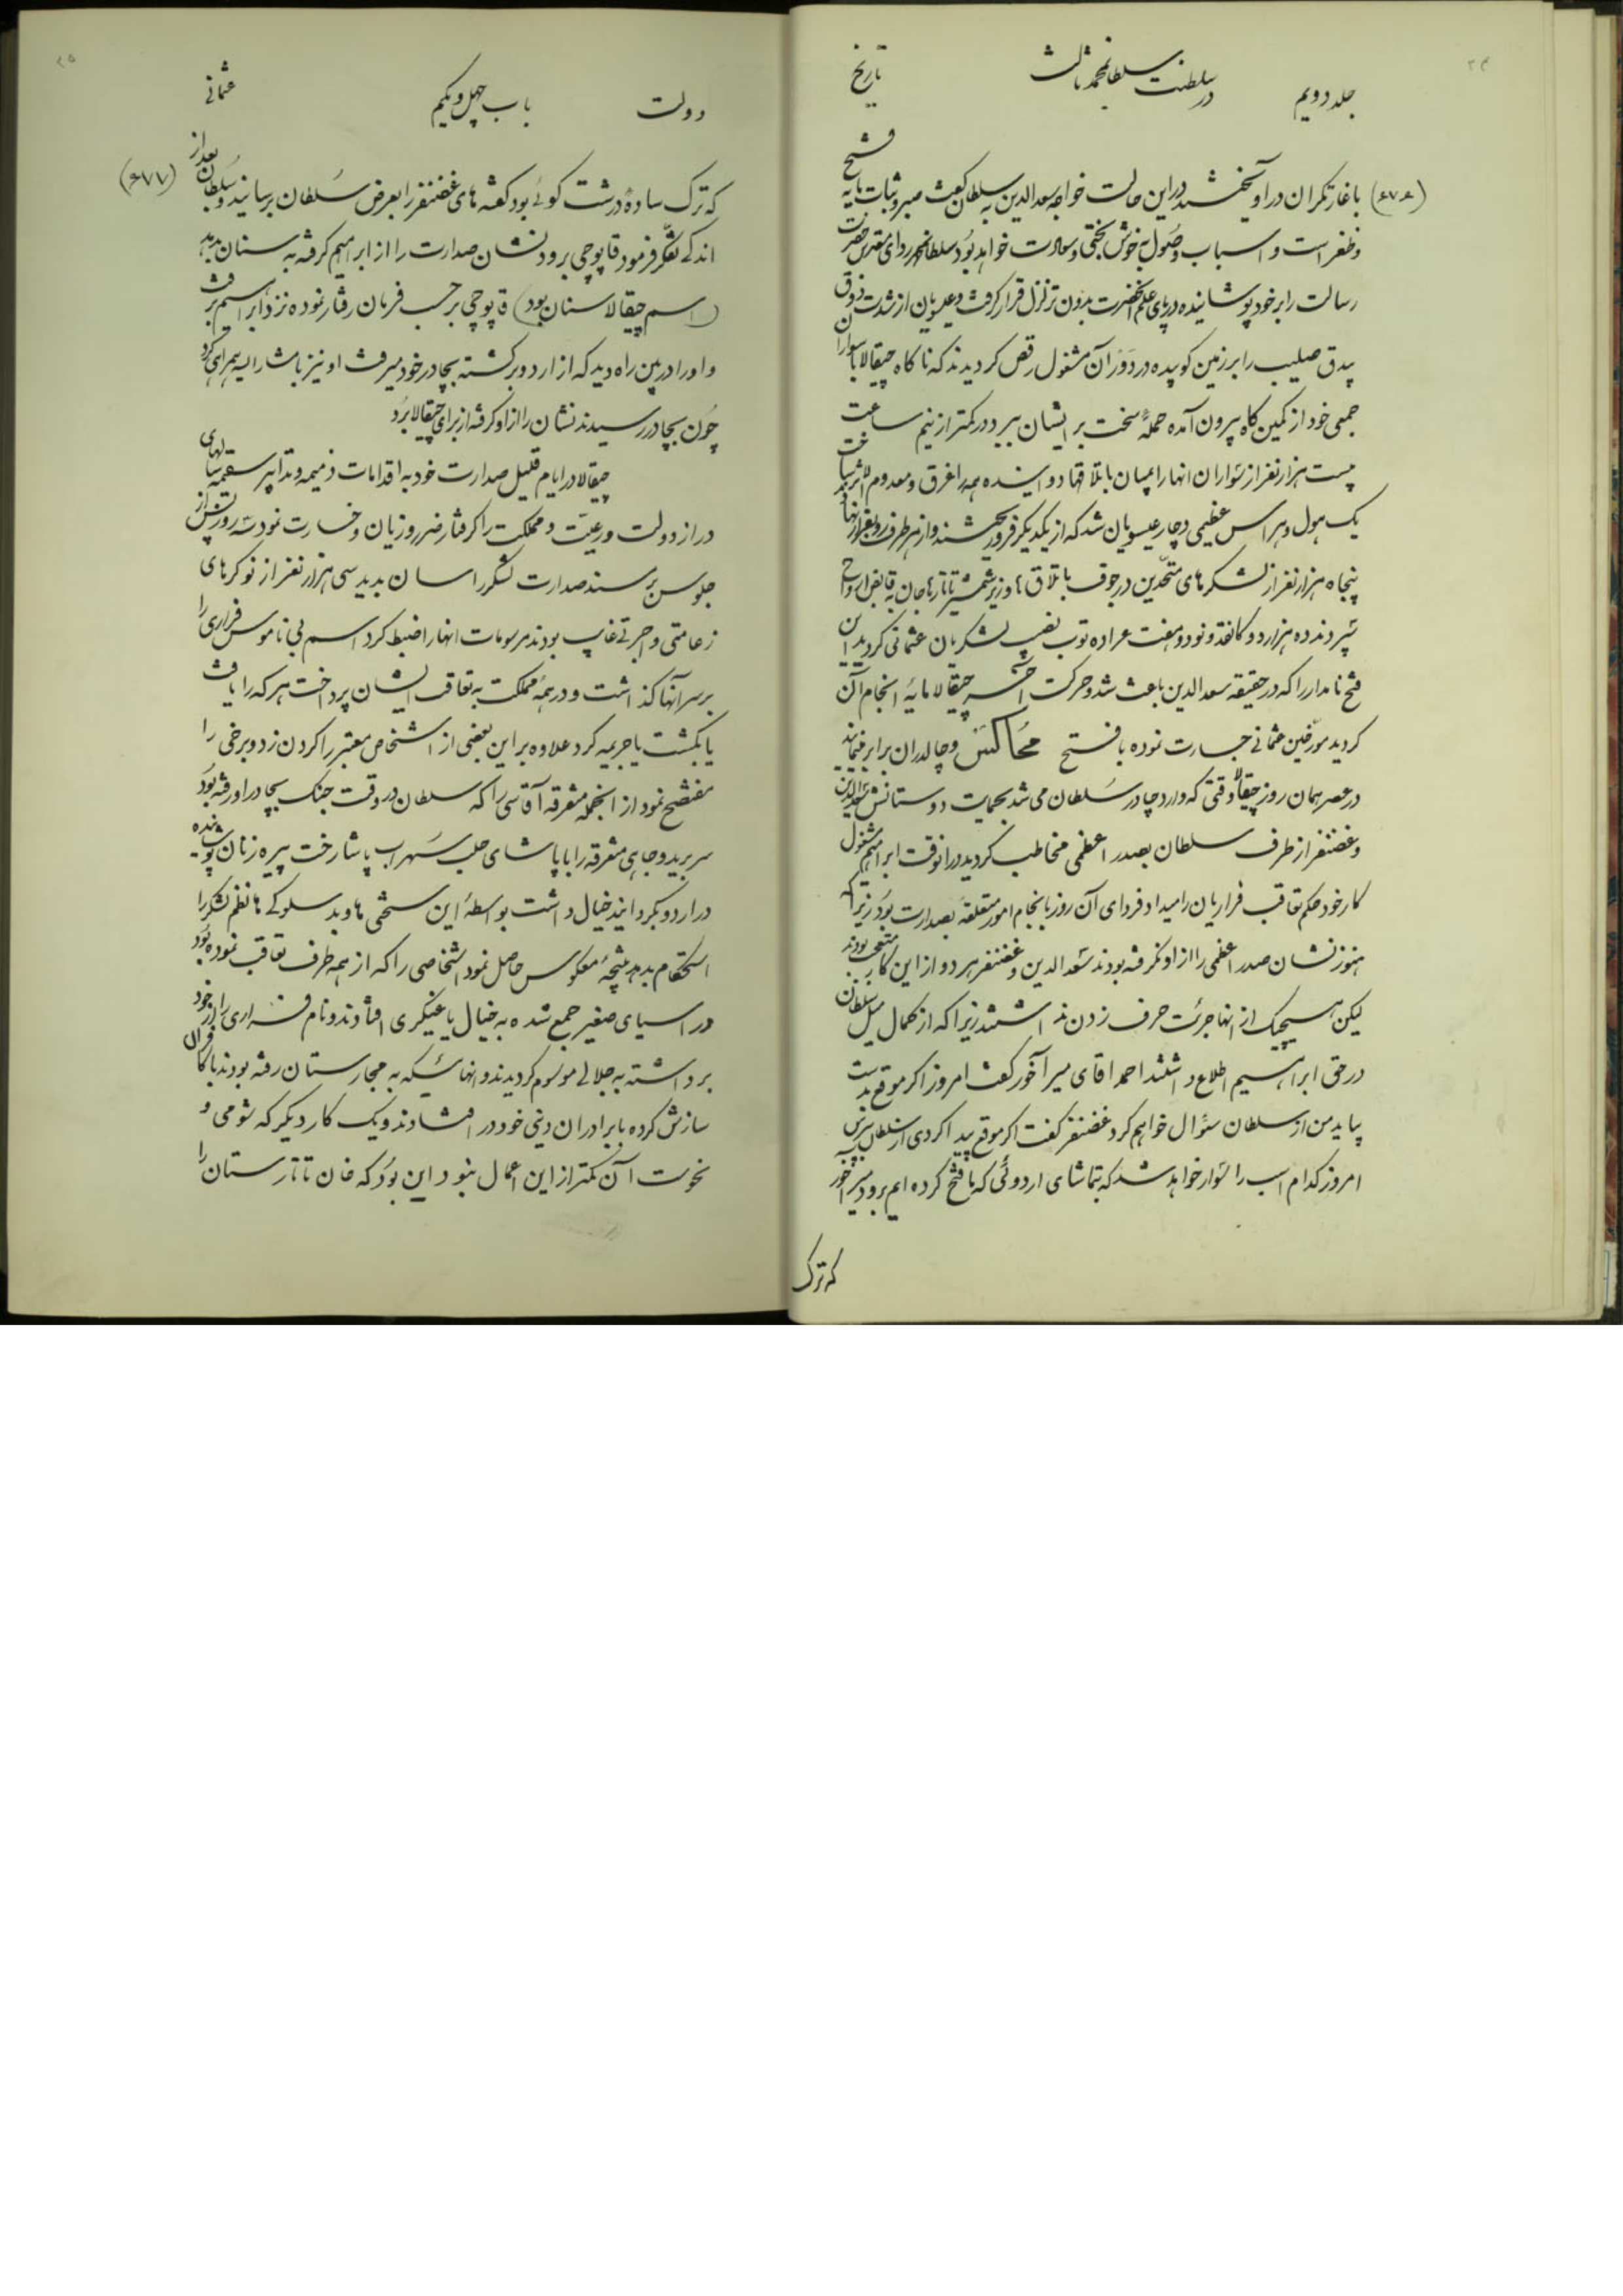 ۲۴
جلد دویم
در سلطنت سلطان محمد ثالث
تاریخ
(۶۷۶) با غارتگران در اویخشند در این حالت خواجه سعدالدین به سلطان گفت صبر و ثبات مایه فتح
و ظفر است و اسباب وصول به خوش بختی و سعادت خواهد بود سلطان محمد ردای مقدس حضرت
رسالت را بر خود پوشانیده در پای علم آنحضرت بدون تزلزل قرار گرفت و عیسویان از شدت ذوق
بیدق صلیب را بر زمین کوبیده در دور آن مشغول رقص گردیدند که ناگاه چیقالا با سواران
جمعی خود از کمین گاه بیرون آمده حملهٔ سخت بر ایشان ببرد و در کمتر از نیم ساعت
بیست هزار نفر از سواران انها را بمیان باتلاقها دوانیده همه را غرق و معدوم الاثر ساخت
یک هول و هراس عظیمی دچار عیسویان شد که از یکدیگر فرو ریختند و از هر طرف رو بفرار نهادند
پنجاه هزار نفر از لشکرهای متحدین در جوف باتلاق ها و زیر شمشیر تاتارها جان به قابض ارواح
سپردند ده هزار دوکا نقد و نود و هفت عراده توپ نصیب لشکریان عثمانی گردید این
فتح نامدار را که در حقیقه سعدالدین باعث شد و حرکت آخر چیقالا مایهٔ انجام آن
گردید مورخین عثمانی جسارت نموده با فتح مُحاکس و چالدران برابر مینمایند
در عصر همان روز چیقالا وقتی که وارد چادر سلطان می شد بحمایت دوستانش سعدالدین
و غضنفر از طرف سلطان بصدر اعظمی مخاطب گردید در انوقت ابراهیم مشغول
کار خود حکم تعاقب فراریان را میداد و فردای آن روز بانجام امور متعلقه بصدارت بود زیرا که
هنوز نشان صدر اعظمی را از او نگرفته بودند سعد الدین و غضنفر هر دو از این کار متعجب بودند
لیکن هیچیک از انها جرئت حرف زدن نداشتند زیرا که از کمال میل سلطان
در حق ابراهیم اطلاع داشتند احمد اقای میر آخور گفت امروز اگر موقع بدست
بیاید من از سلطان سئوال خواهم کرد غضنفر گفت اگر موقع پیدا کردی از سلطان بپرس
امروز کدام اسب را سوار خواهد شد که بتماشای اردوئی که ما فتح کرده ایم برود میر آخور
که ترک
۲۵
دولت
باب چهل و یکم
عثمانی
که ترک سادهٔ درشت گوئی بود گفته های غضنفر را بعرض سُلطان برسانید و سلطان بعد از (۶۷۷)
اندکی تفکر فرمود قاپوچی برود نشان صدارت را از ابراهیم گرفته به سنان بدهد
(اسم چیقالا سنان بود) قاپوچی بر حسب فرمان رفتار نموده نزد ابراهیم برفت
و او را در بین راه دید که از اردو برگشته بچادر خود میرفت او نیز با مشارالیه همراهی کرد
چون بچادر رسیدند نشان را از او گرفته از برای چیقالا بُرد
چیقالا در ایام قلیل صدارت خود به اقدامات ذمیمه و تدابیر سقیمه سالهای
دراز دولت و رعیّت و مملکت را گرفتار ضرر و زیان و خسارت نمود سه روز پس از
جلوس بر مسند صدارت لشکر را سان بدید سی هزار نفر از نوکرهای
زعامتی و اجرتی غایب بودند مرسومات انها را ضبط کرد اسم بی ناموس فراری را
بر سر آنها گذاشت و در همهٔ مملکت به تعاقب ایشان پرداخت هر که را یافت
یا بکشت یا جریمه کرد علاوه بر این بعضی از اشخاص معتبر را گردن زد و برخی را
مفتضح نمود از انجمله متفرقه آقاسی را که سلطان در وقت جنگ بچادر او رفته بود
سر برید و جاهی متفرقه را با پاشای حلب سَهراب پاشا رخت پیره زنان پوشانیده
در اردو بگردانید خیال داشت بواسطهٔ این سختی ها و بد سلوکی ها نظم لشکر را
استحکام بدهد نتیجهٔ معکوس حاصل نمود اشخاصی را که از همه طرف تعاقب نموده بود
در اسیای صغیر جمع شده به خیال یاغیگری افتادند و نام فراری را از خود
برداشته به جلالی موسوم گردیدند و انهائیکه به مجارستان رفته بودند با کافران
سازش کرده با برادران دینی خود در افتادند و یک کار دیگر که شومی و
نحوست آن کمتر از این اعمال نبود این بود که خان تاتارستان را